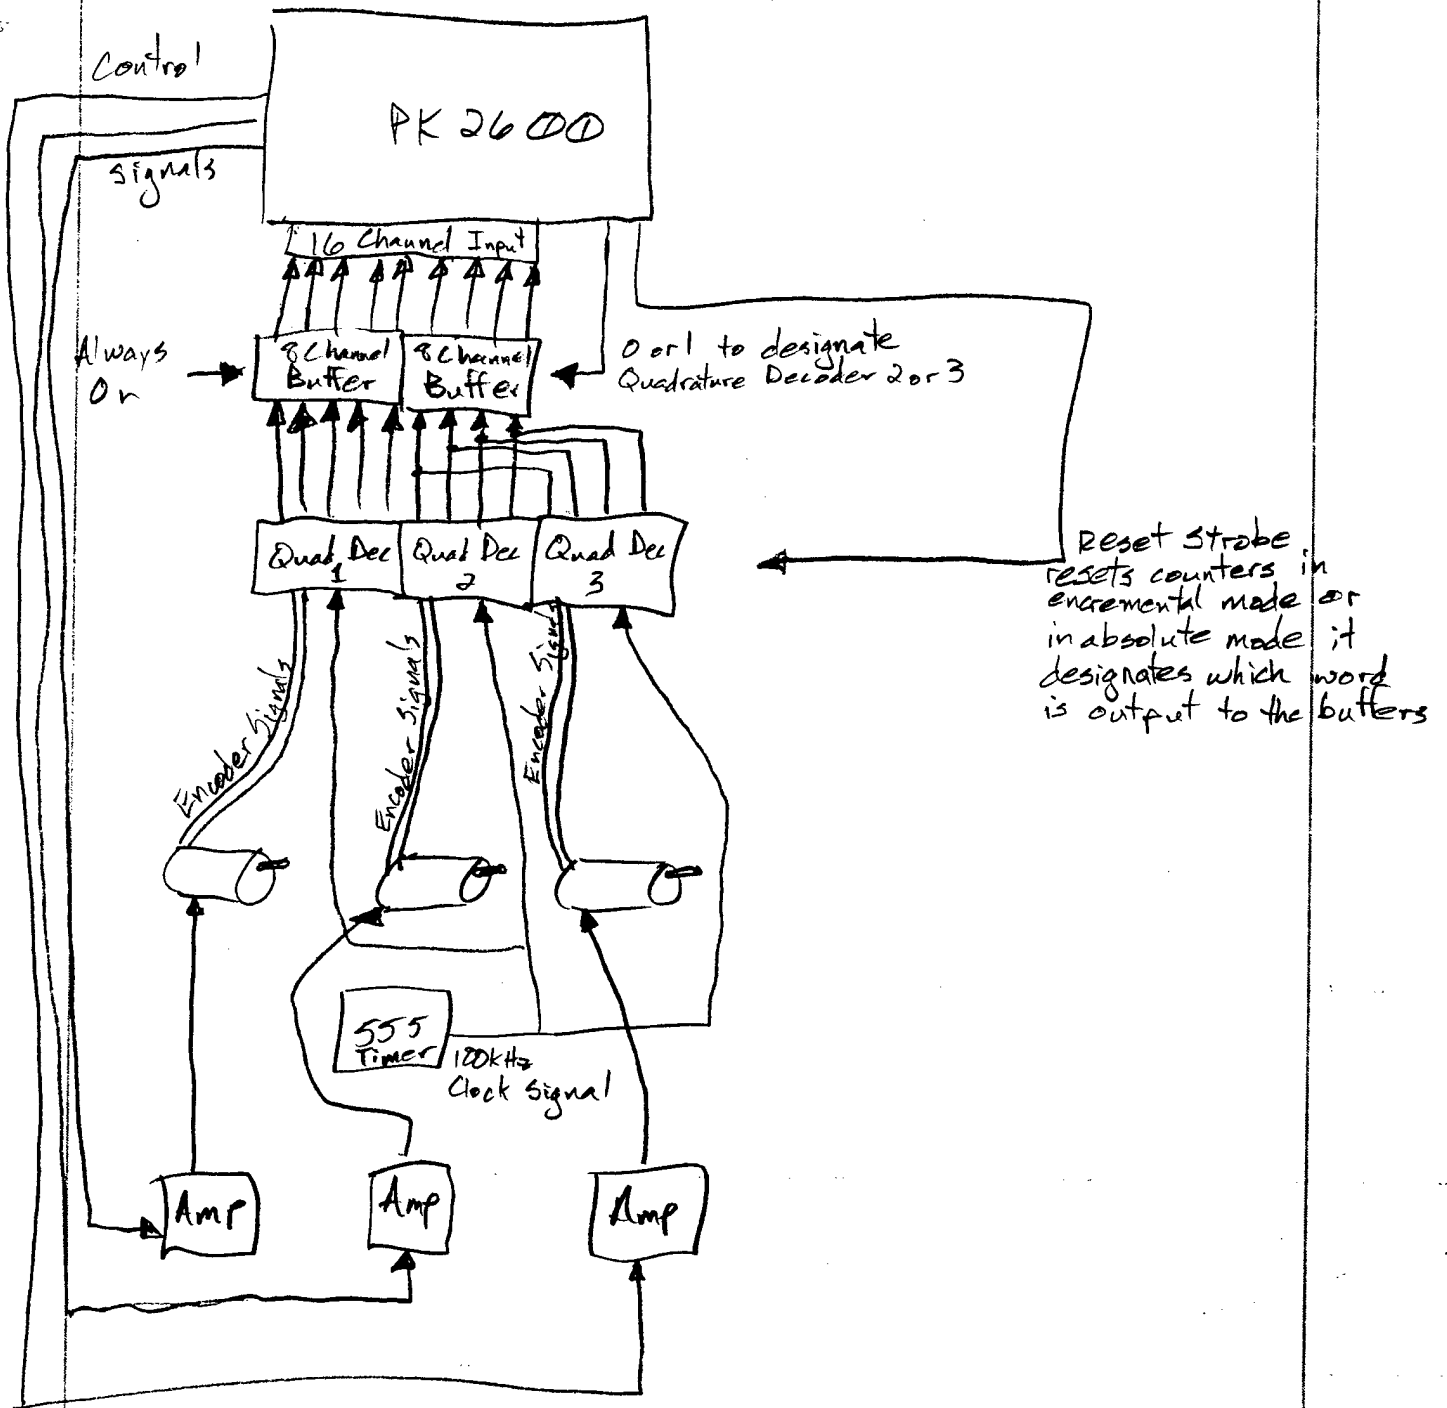 Control
signals
PK 2600
16 Channel Input
Always
On
8 Channel
Buffer
8 Channel
Buffer
0 or 1 to designate
Quadrature Decoder 2 or 3
Quad Dec
1
Quad Dec
2
Quad Dec
3
Reset Strobe
resets counters in
encremental mode or
in absolute mode it
designates which word
is output to the buffers
Encoder Signals
Encoder Signals
Encoder Signals
555
Timer
100kHz
Clock Signal
Amp
Amp
Amp